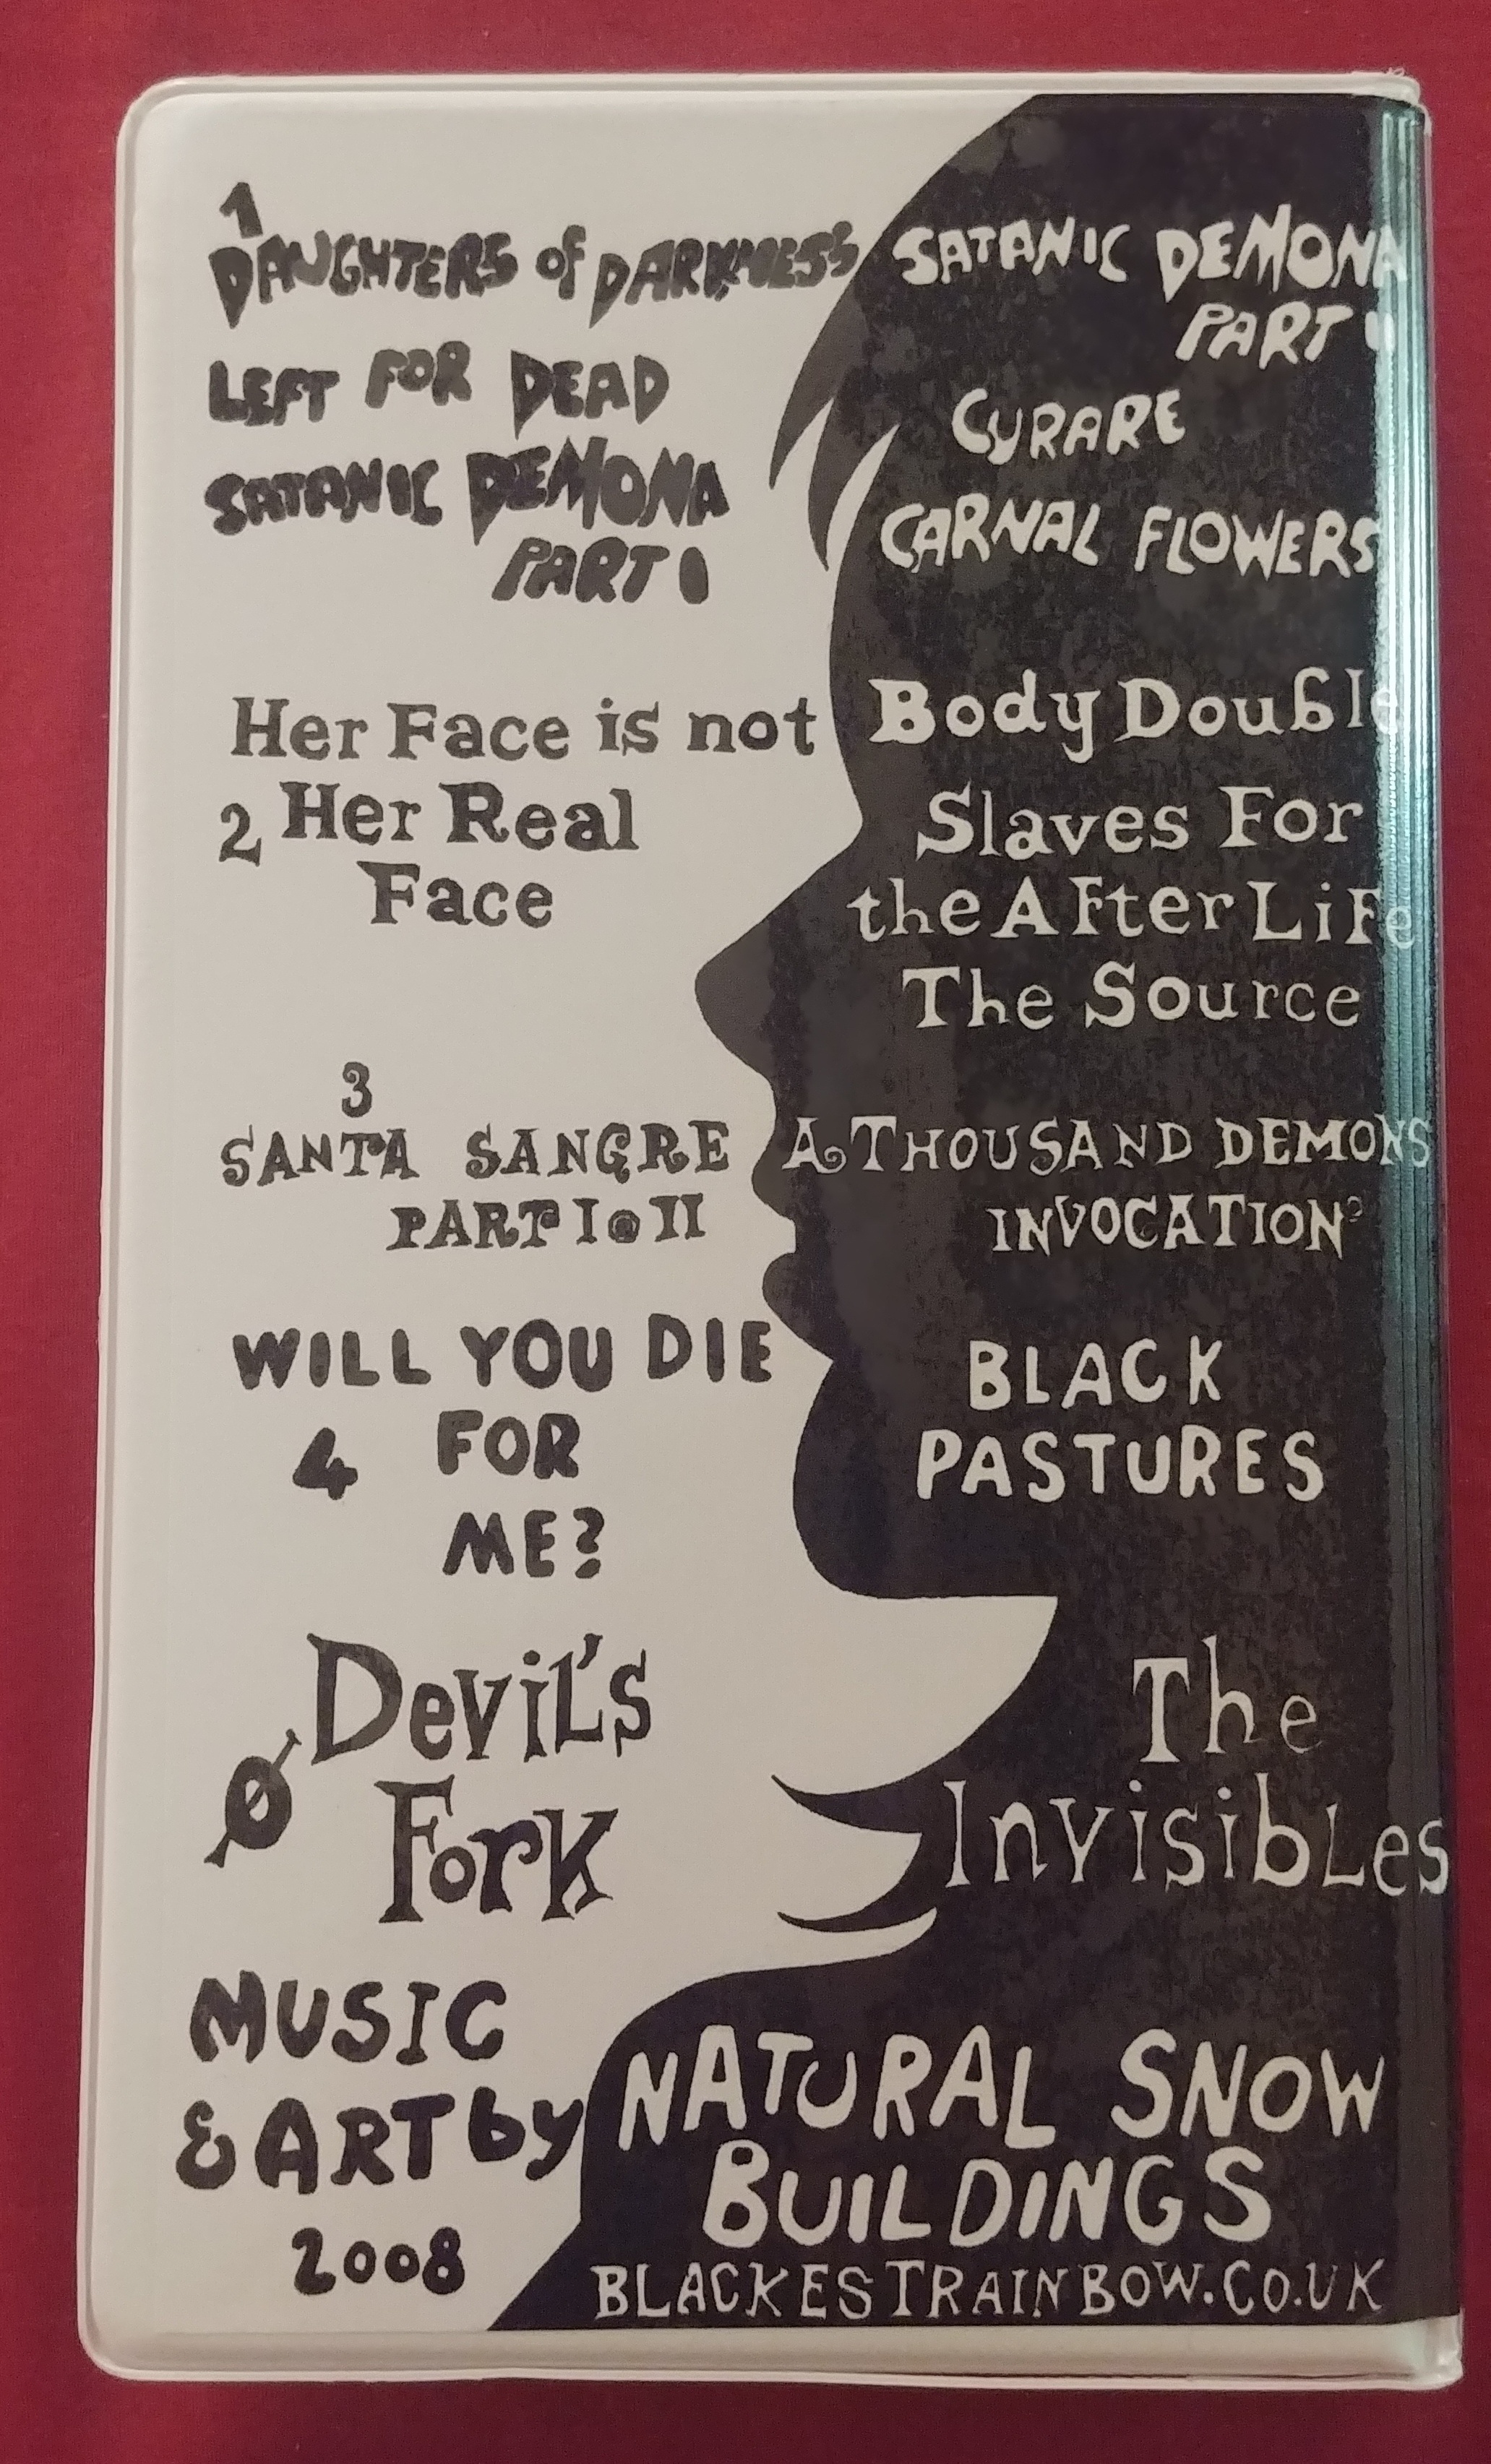 1
DAUGHTERS of DARKNESS
LEFT FOR DEAD
SATANIC DEMONA
PART I
SATANIC DEMONA
PART II
CURARE
CARNAL FLOWERS
Her Face is not
2 Her Real
Face
Body Double
Slaves For
the AFter LiFe
The Source
3
SANTA SANGRE
PART I @ II
A THOUSAND DEMONS
INVOCATION
WILL YOU DIE
4 FOR
ME?
BLACK
PASTURES
DeviL's
Fork
The
InvisibLes
MUSIC
& ART by
2008
NATURAL SNOW
BUILDINGS
BLACKESTRAINBOW.CO.UK